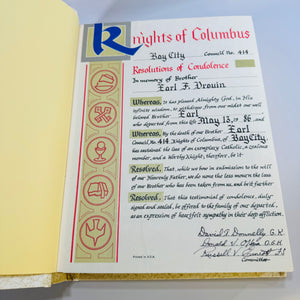 Knights of Columbus
Bay City Council No. 414
Resolutions of Condolence
In memory of Brother
Earl F. Drouin
Whereas, It has pleased Almighty God, in His
infinite wisdom, to withdraw from our midst our well
beloved Brother, Earl
who departed from this life May 13, 19 86, and
Whereas, By the death of our Brother Earl
Council No. 414 Knights of Columbus, of Bay City
has sustained the loss of an exemplary Catholic, a zealous
member, and a worthy Knight, therefore, be it:
Resolved, That, while we bow in submission to the will of
our Heavenly Father, we do none the less mourn the loss
of our Brother who has been taken from us, and be it further
Resolved, That this testimonial of condolence, duly
signed and sealed, be offered to the family of our departed,
as an expression of heartfelt sympathy in their deep affliction.
David J. Donnelly G.K.
Donald V.
Russell V.
Committee
Printed in U.S.A.